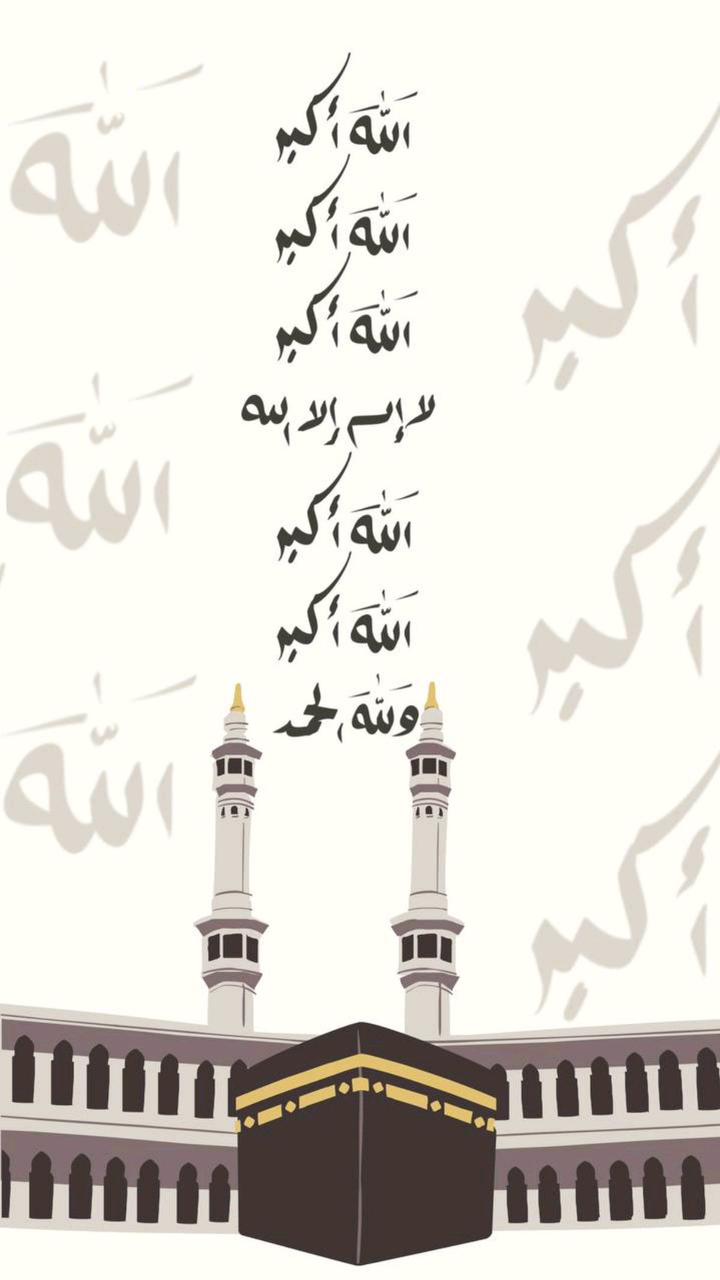 الله أكبر
الله أكبر
الله أكبر
لا إله إلا الله
الله أكبر
الله أكبر
ولله الحمد
الله أكبر
الله أكبر
الله أكبر